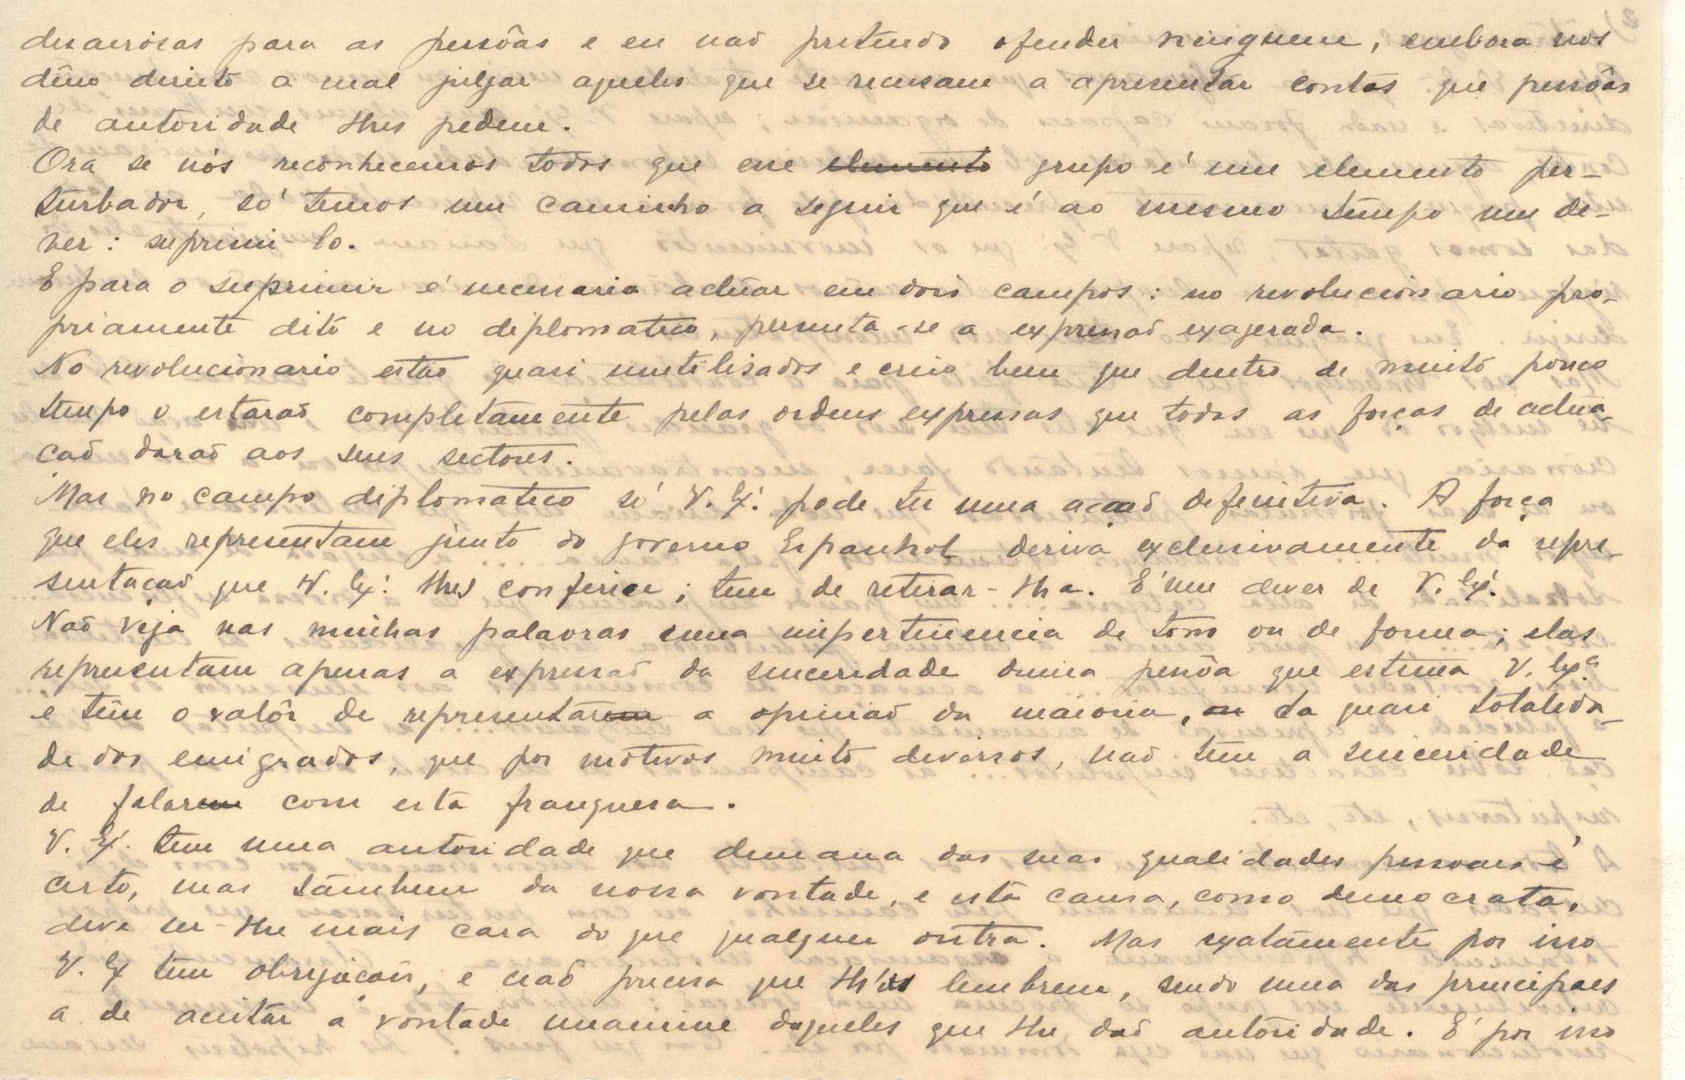 desairosas para as pessôas e eu não pretendo ofender ninguem, embora nos
dêno direito a mal julgar aqueles que se recusam a apresentar contas que pessôas
de autoridade lhes pedem.
Ora se nós reconhecemos todos que esse elemento grupo é um elemento per-
turbador, só temos um caminho a seguir que é ao mesmo tempo um de-
ver: suprimi-lo.
E para o suprimir é necessario actuar em dois campos: no revolucionario pro-
priamente dito e no diplomatico, permita-se a expressão exagerada.
No revolucionario estão quasi inutilisados e creio bem que dentro de muito pouco
tempo o estarão completamente pelas ordens expressas que todas as forças de actua-
ção darão aos seus sectores.
Mas no campo diplomatico só V. Ex.ª pode ter uma acção definitiva. A força
que eles representam junto do governo Espanhol deriva exclusivamente da repre-
sentação que V. Ex.ª lhes confere; tem de retirar-lha. É um dever de V. Ex.ª
Não veja nas minhas palavras uma impertinencia de tom ou de forma; elas
representam apenas a expressão da sinceridade duma pessôa que estima V. Ex.ª
e tem o valôr de representarem a opinião da maioria, ou da quasi totalida-
de dos emigrados, que por motivos muito diversos, não tem a sinceridade
de falarem com esta franquesa.
V. Ex. tem uma autoridade que demana das suas qualidades pessoaes é
certo, mas tâmbem da nossa vontade, e esta causa, como democrata,
deve ser-lhe mais cara do que qualquer outra. Mas exatamente por isso
V. Ex tem obrigações, e não precisa que lh'as lembrem, sendo uma das principaes
a de aceitar a vontade unanime daqueles que lhe dão autoridade. É por isso